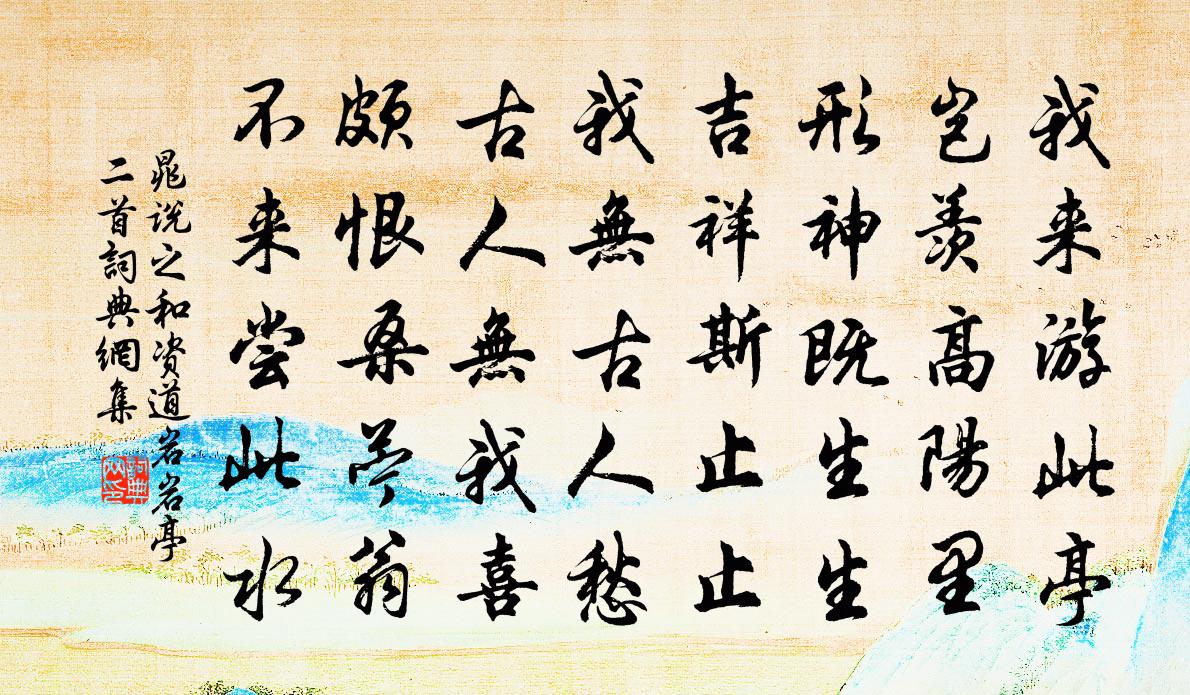 我来游此亭
岂羡高陽里
形神既生生
吉祥斯止止
我無古人愁
古人無我喜
頗恨桑苧翁
不来尝此水
晁说之和资道岩岩亭
二首詞典網集